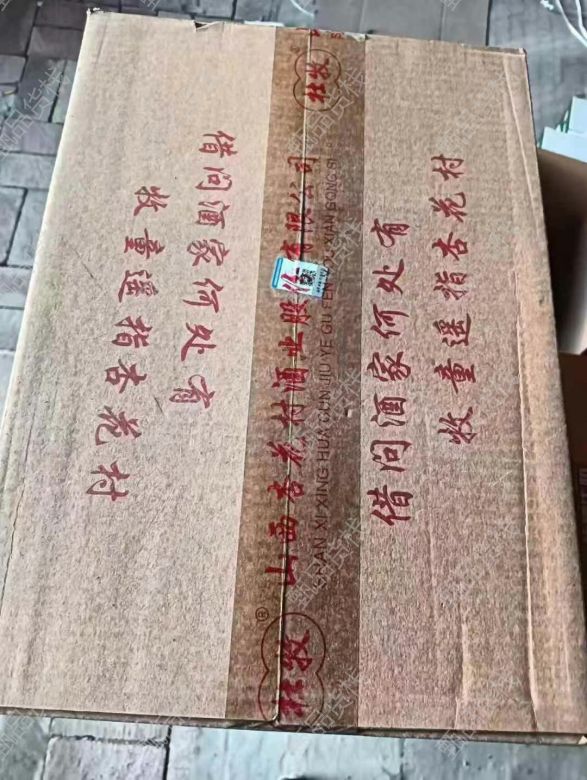 借问酒家何处有
牧童遥指杏花村
杜牧®
山西杏花村酒业股份有限公司
SHAN XI XING HUA CUN JIU YE GU FEN YOU XIAN GONG SI
杜牧
借问酒家何处有
牧童遥指杏花村